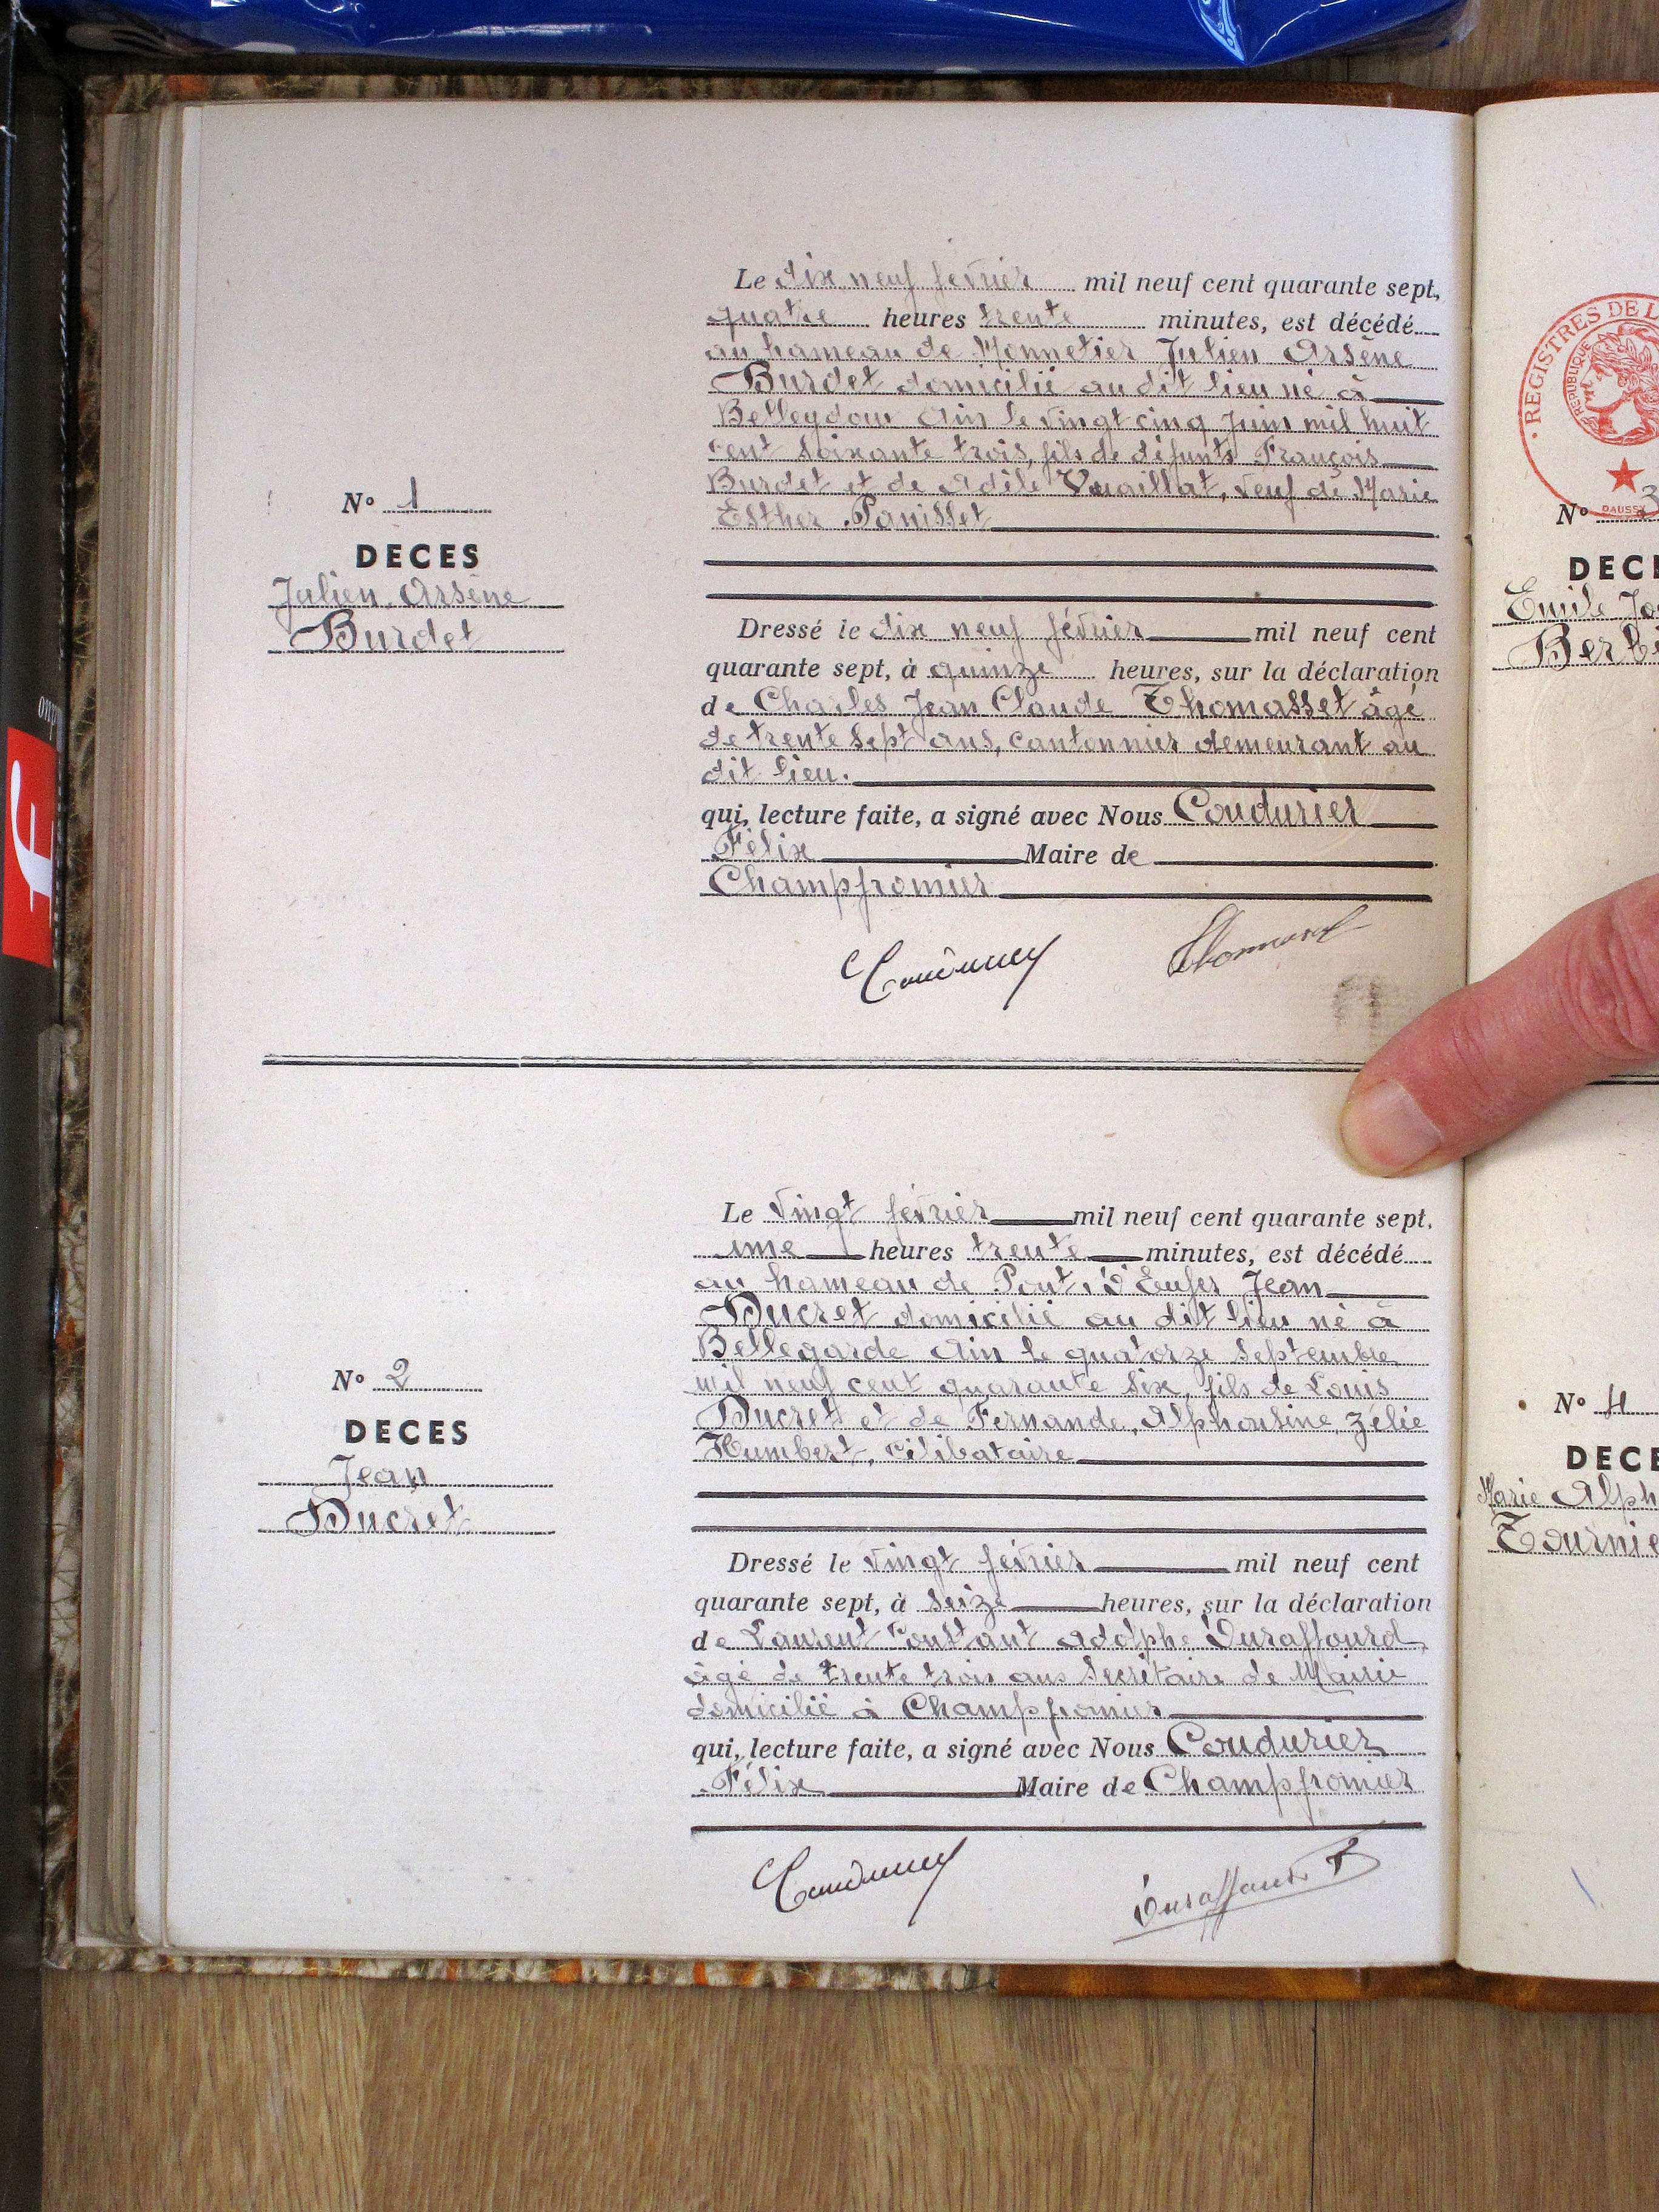 Le dix neuf février mil neuf cent quarante sept,
quatre heures trente minutes, est décédé
au hameau de Monnetier Julien Arsène
Burdet domicilié au dit lieu né à
Belleydoux Ain le vingt cinq Juin mil huit
cent soixante trois, fils de défunts François
Burdet et de Adèle Vuaillat, veuf de Marie
Esther Panisset
N° 1
DECES
Julien Arsène
Burdet
Dressé le dix neuf février mil neuf cent
quarante sept, à quinze heures, sur la déclaration
de Charles Jean Claude Thomasset âgé
de trente sept ans, cantonnier demeurant au
dit lieu.
qui, lecture faite, a signé avec Nous Coudurier
Félix Maire de
Champfromier
Le vingt février mil neuf cent quarante sept.
une heures trente minutes, est décédé
au hameau de Pont d'Enfer Jean
Ducret domicilié au dit lieu né à
Bellegarde Ain le quatorze Septembre
mil neuf cent quarante six, fils de Louis
Ducret et de Fernande, Alphonsine, Zélie
Humbert, célibataire
N° 2
DECES
Jean
Ducret
Dressé le vingt février mil neuf cent
quarante sept, à seize heures, sur la déclaration
de Laurent Constant Adolphe Duraffourd
âgé de trente trois ans Secrétaire de Mairie
domicilié à Champfromier
qui, lecture faite, a signé avec Nous Coudurier
Félix Maire de Champfromier
Duraffourd
REGISTRES DE L
REPUBLIQUE
N°
DECE
Emile
N° 4
DECE
Marie Alph
Tournie